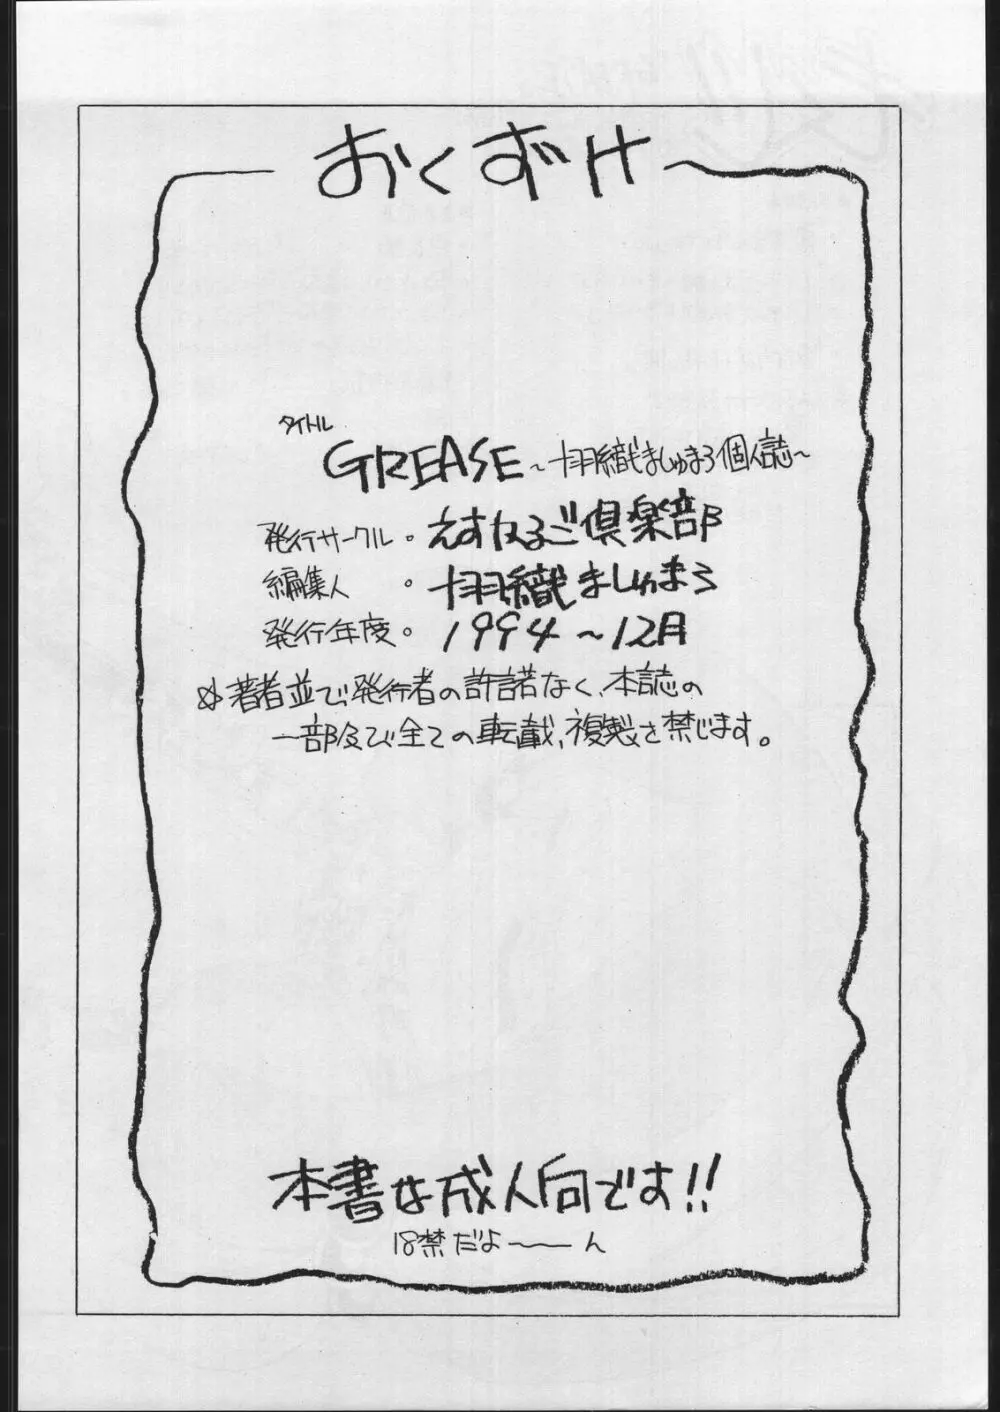 おくずけ
タイトル
GREASE ～羽織ましゅまろ個人誌～
発行サークル。えすかるご倶楽部
編集人。羽織ましゅまろ
発行年度。1994～12月
☆著者並び、発行者の許諾なく、本誌の
一部及び全ての転載、複製を禁じます。
本書は成人向です!!
18禁だよ〜ん